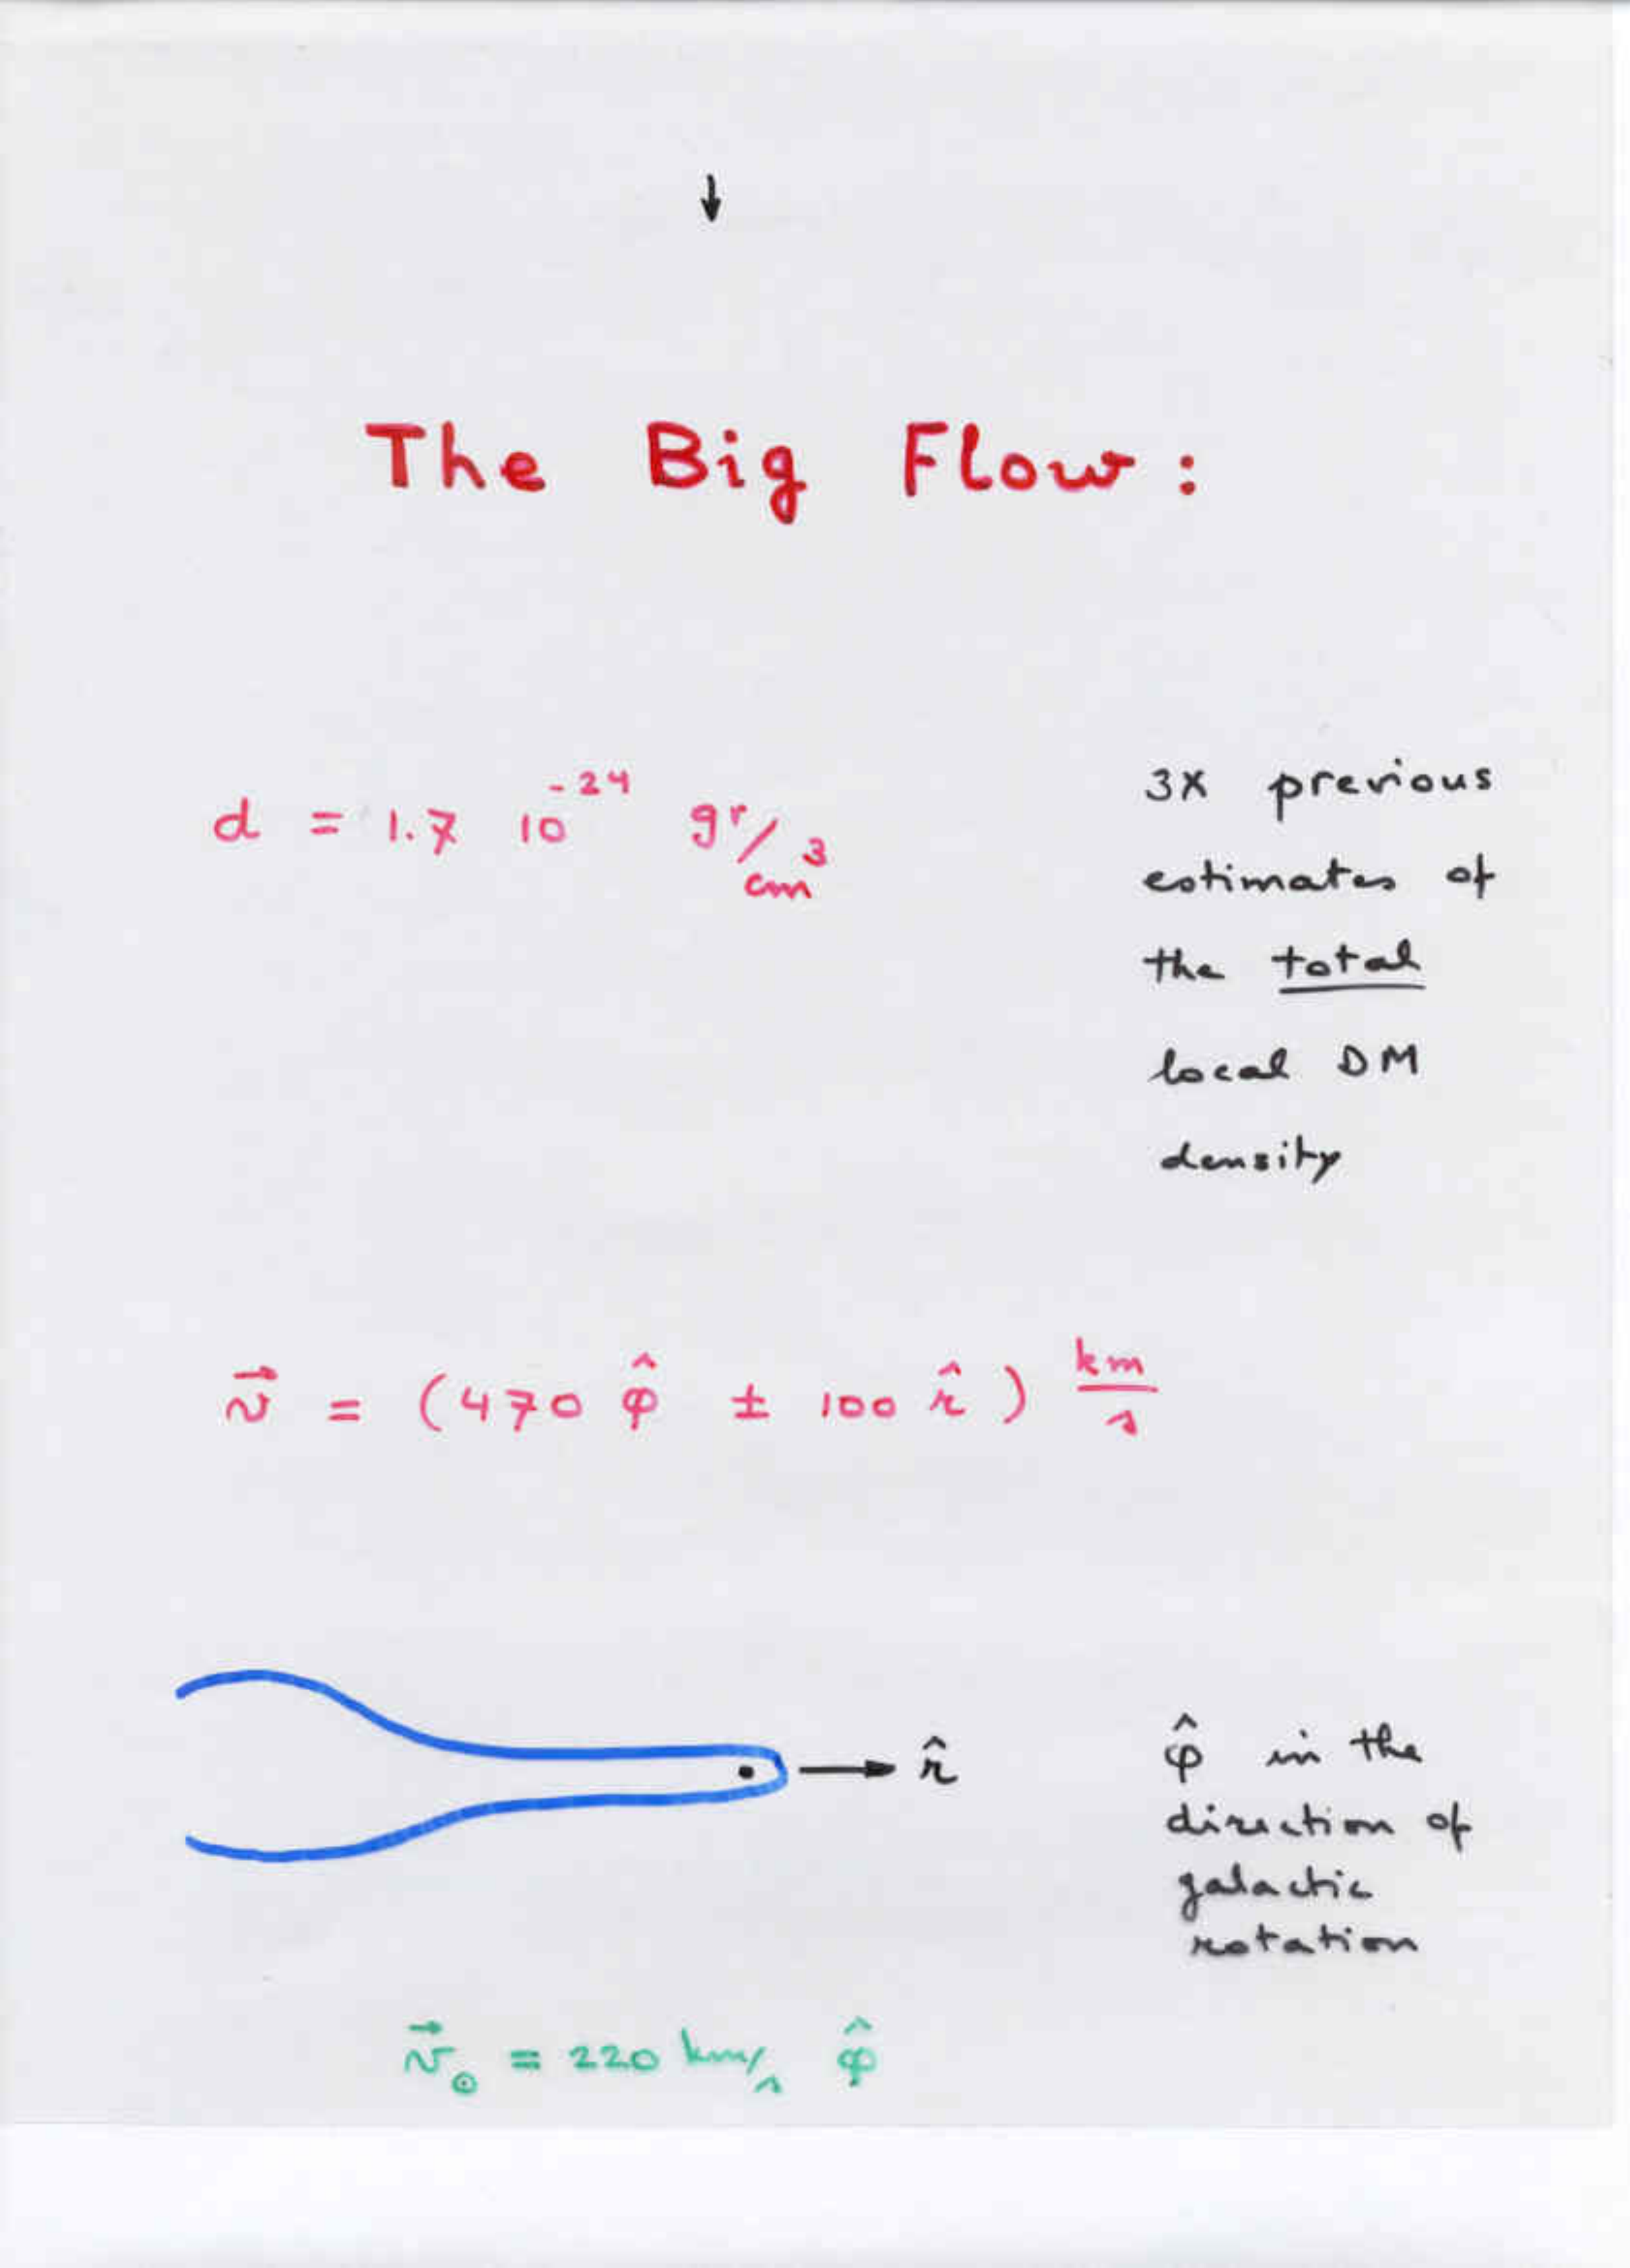 ↓
The Big Flow:
d = 1.7 10⁻²⁴ gr/cm³
3X previous
estimates of
the total
local DM
density
v⃗ = (470 φ̂ ± 100 r̂) km/s
r̂
φ̂ in the
direction of
galactic
rotation
v⃗⊙ = 220 km/s φ̂